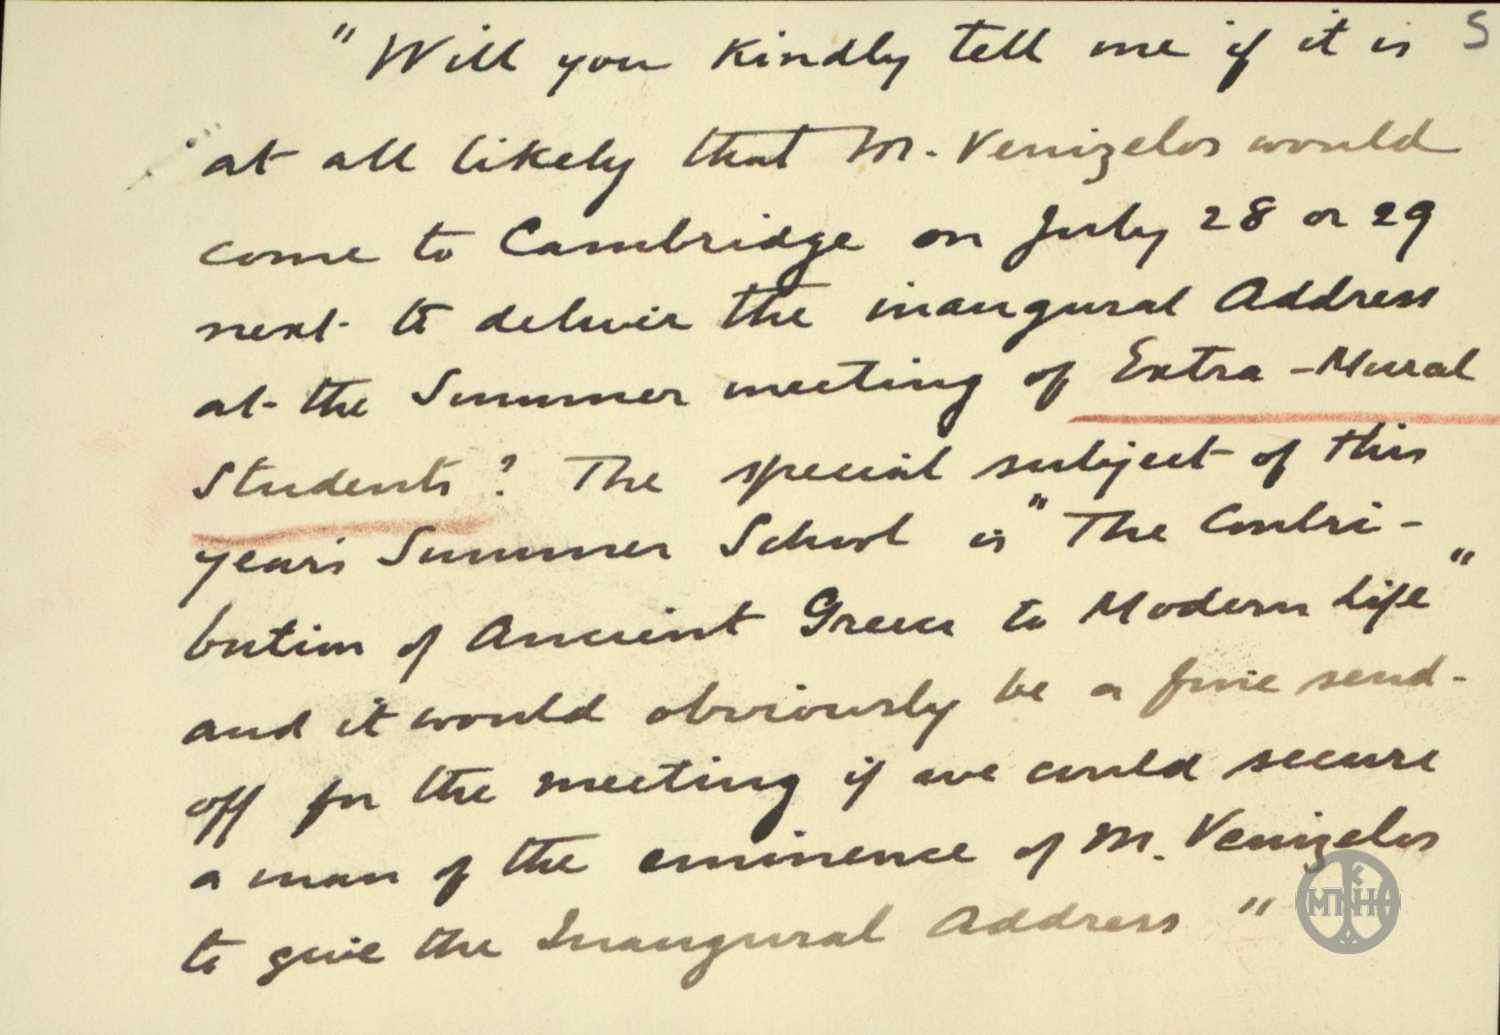 "Will you kindly tell me if it is 5
at all likely that M. Venizelos would
come to Cambridge on July 28 or 29
next to deliver the inaugural Address
at the Summer meeting of Extra-Mural
Students? The special subject of this
years Summer School is "The Contri-
bution of Ancient Greece to Modern Life"
and it would obviously be a fine send-
off for the meeting if we could secure
a man of the eminence of M. Venizelos
to give the Inaugural Address"